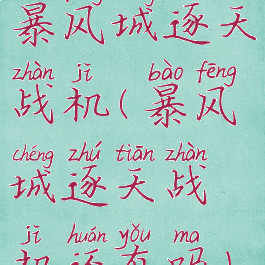 暴风城逐天
zhàn jī bào fēng
战机(暴风
chéng zhú tiān zhàn
城逐天战
jī huán yǒu ma
机还有吗)